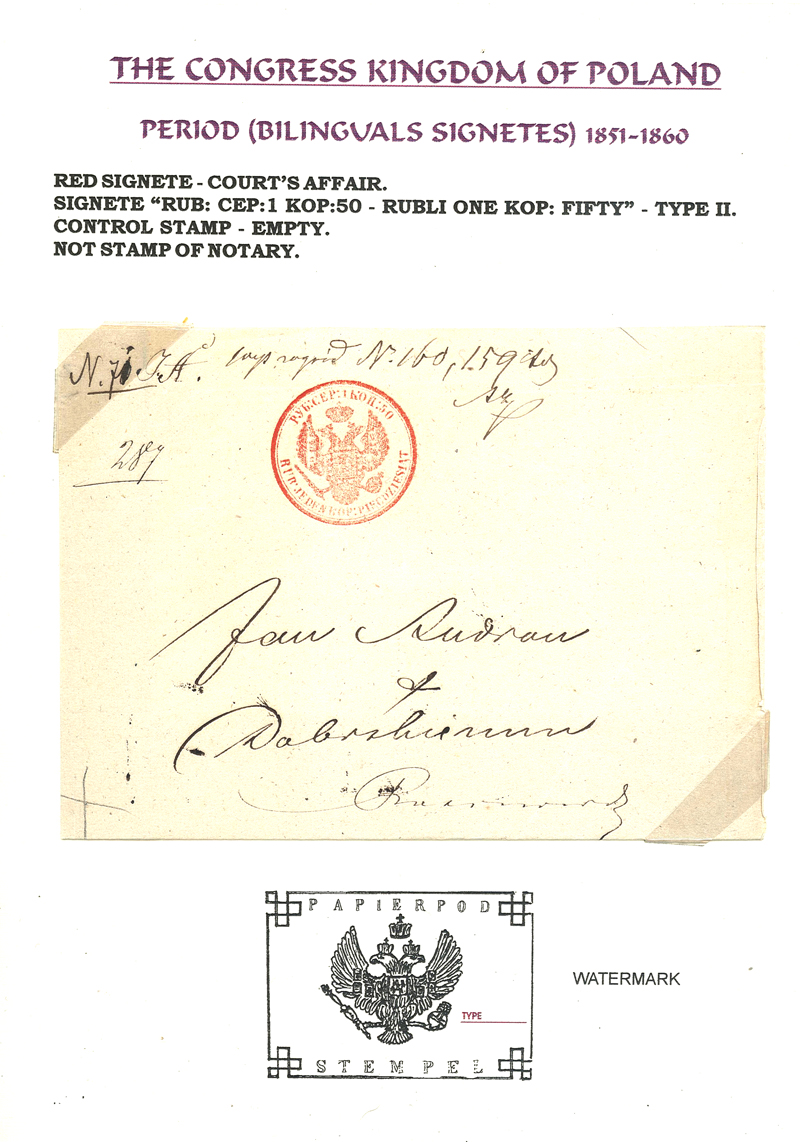 THE CONGRESS KINGDOM OF POLAND
PERIOD (BILINGUALS SIGNETES) 1851-1860
RED SIGNETE - COURT'S AFFAIR.
SIGNETE “RUB: CEP:1 KOP:50 - RUBLI ONE KOP: FIFTY” - TYPE II.
CONTROL STAMP - EMPTY.
NOT STAMP OF NOTARY.
N. 71. J.A.
N. 160, 159
287
РУБ:СЕР:1 КОП:50
RUB:JEDEN KOP:PIĘĆDZIESIĄT
Jan Audran
PAPIER POD
TYPE
STEMPEL
WATERMARK